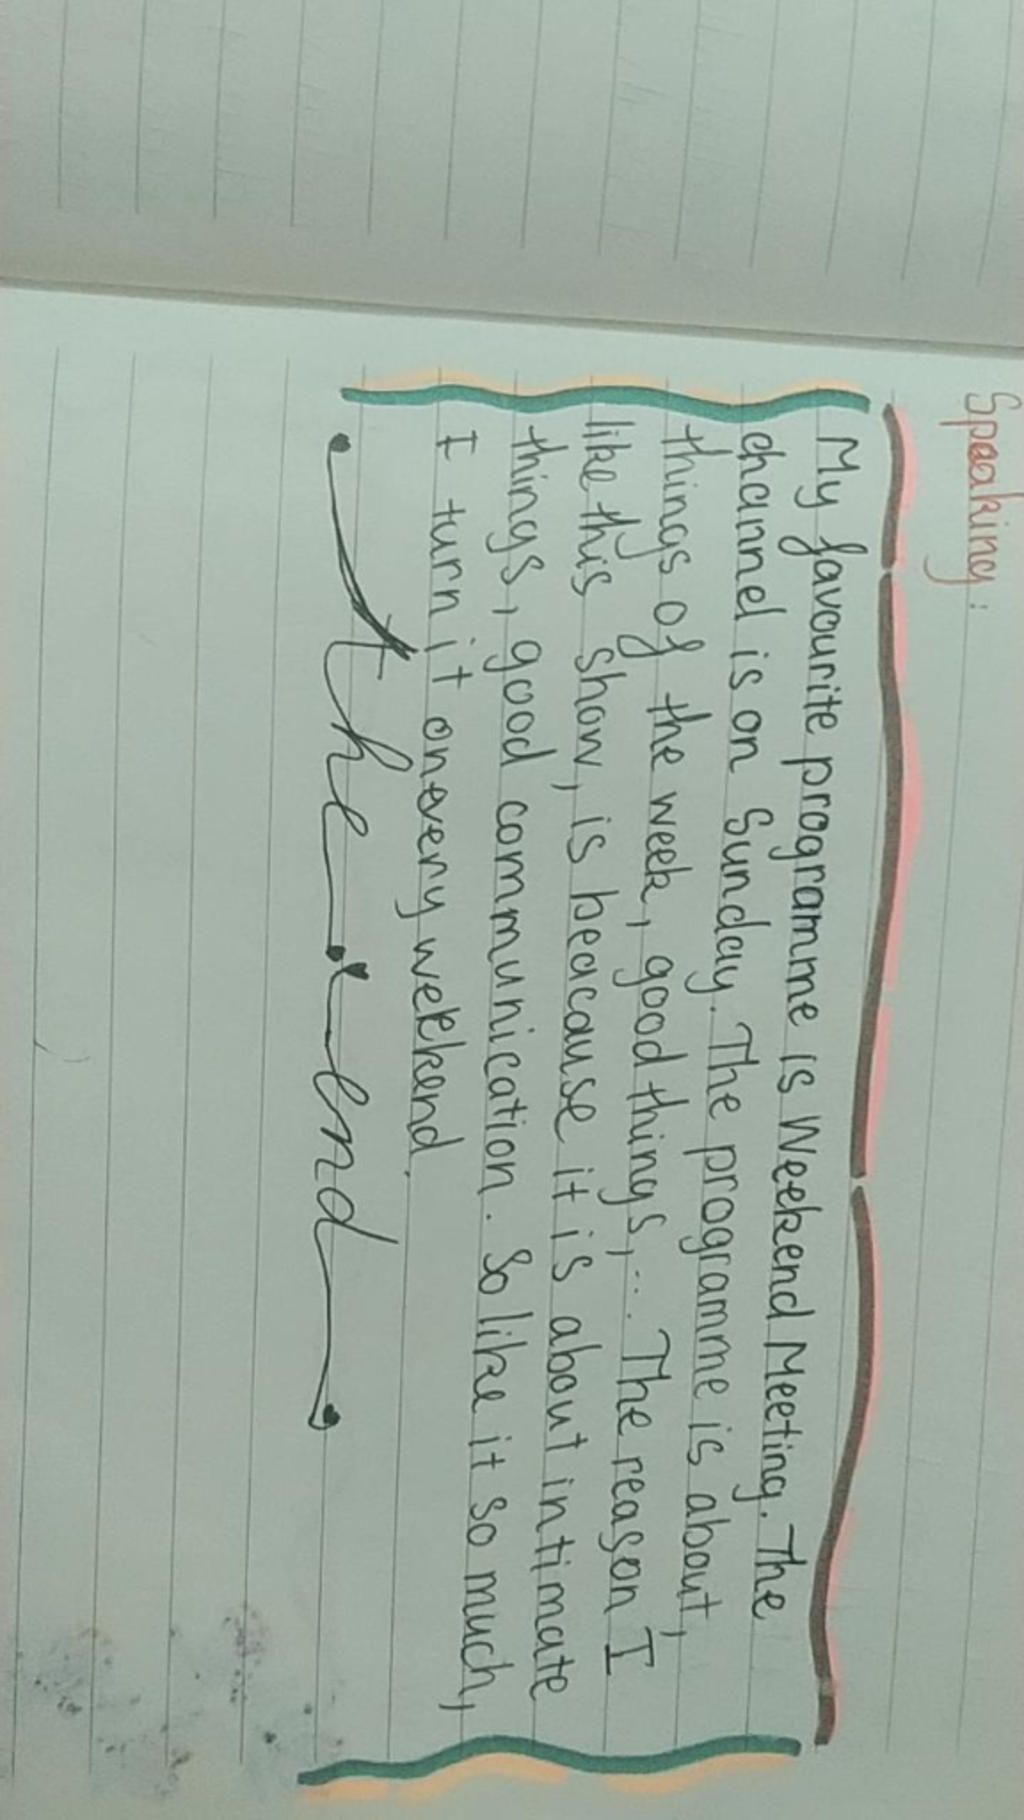 Speaking:
My favourite programme is Weekend Meeting. The
channel is on Sunday. The programme is about,
things of the week, good things,... The reason I
like this show, is beacause it is about intimate
things, good communication. So like it so much,
I turn it on every weekend.
the end